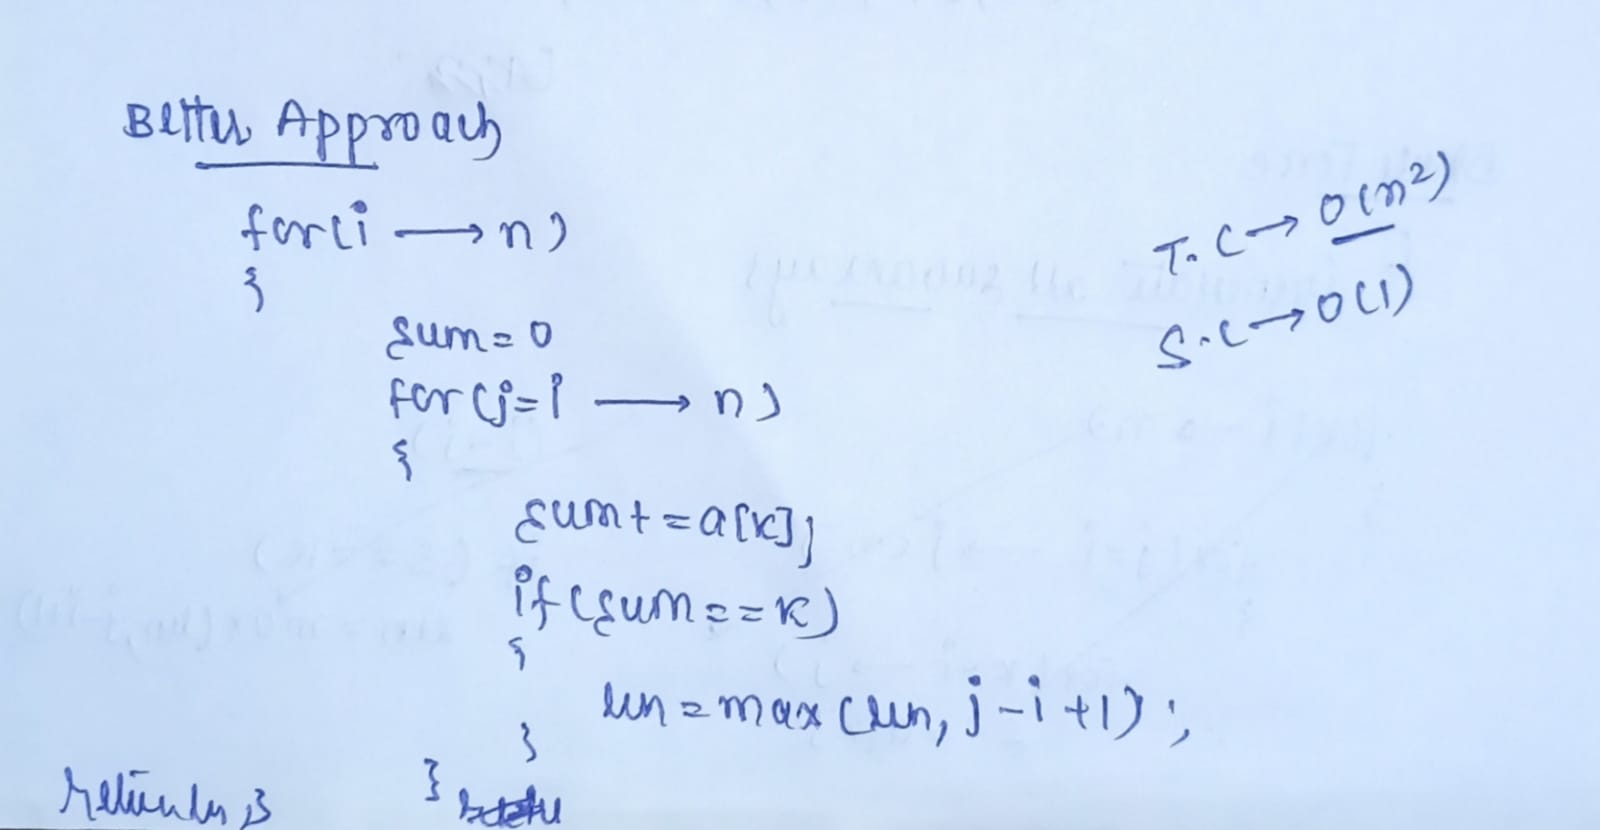 Better Approach
for(i → n)
{
sum=0
for(j=i → n)
{
sum+=a[k];
if(sum==k)
{
len=max(len, j-i+1);
}
}
return len;
T.C → O(n²)
S.C → O(1)